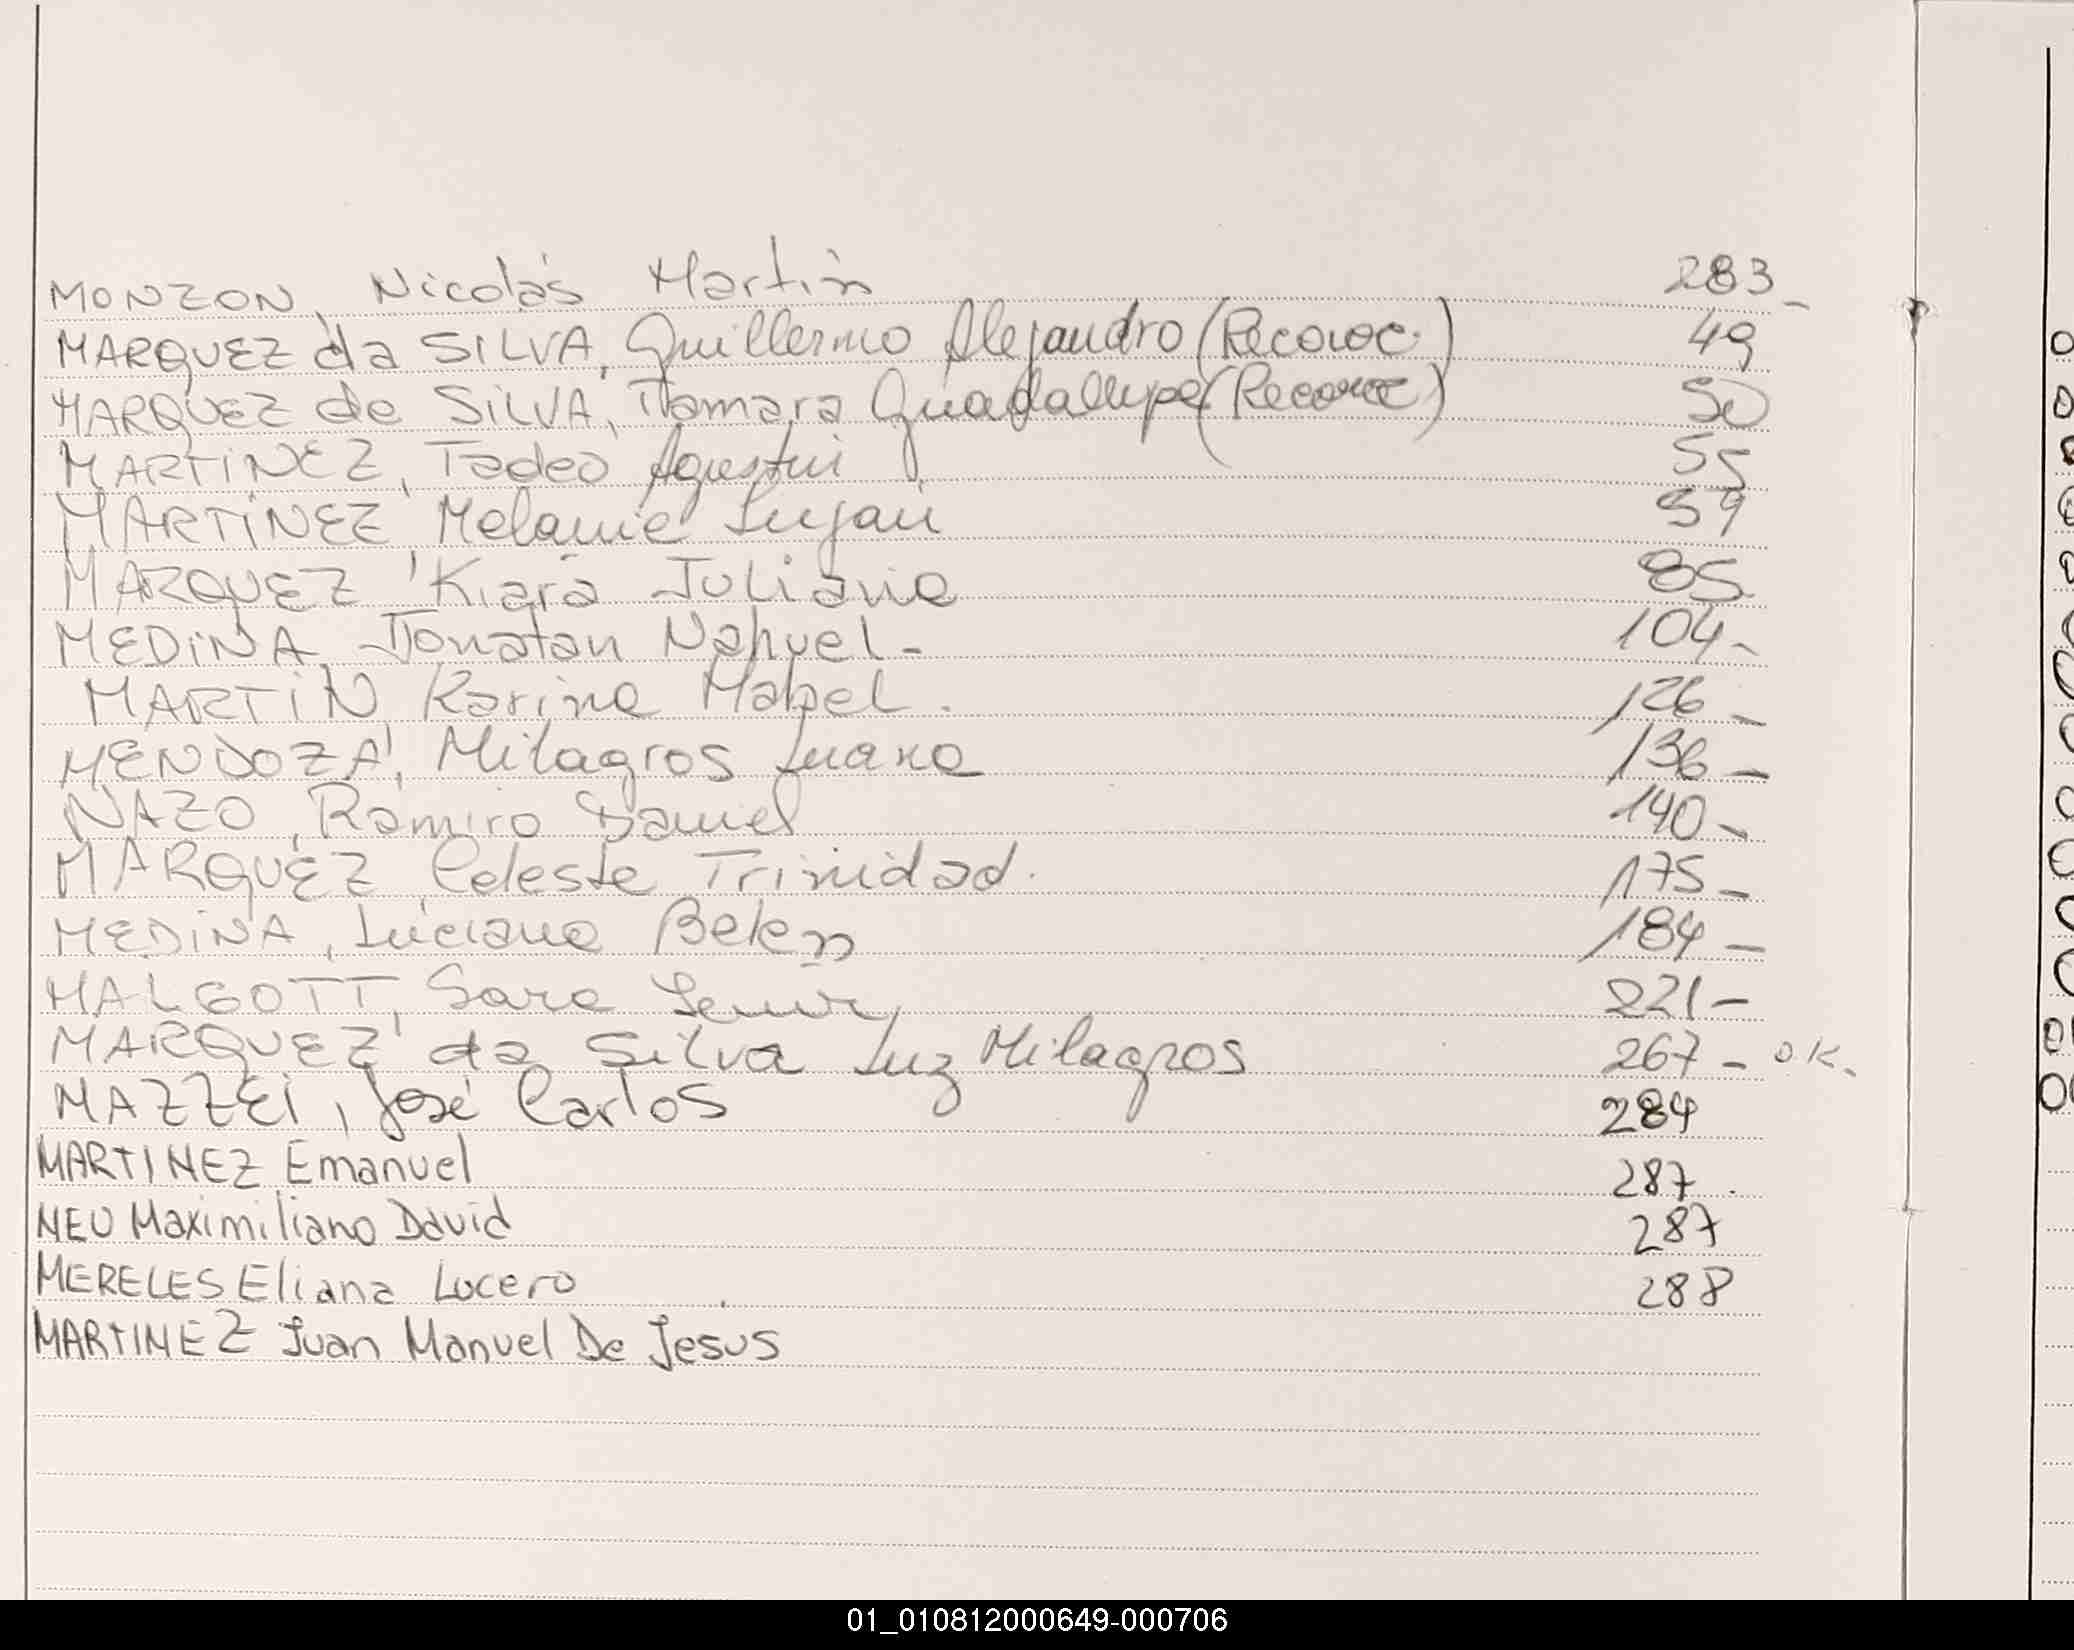 MONZON, Nicolás Martín 283-
MARQUEZ da SILVA, Guillermo Alejandro (Reconoc.) 49
MARQUEZ da SILVA, Tamara Guadalupe (Reconoc) 50
MARTINEZ, Tadeo Agustin 55
MARTINEZ Melanie Lujan 59
MARQUEZ, Kiara Juliana 85
MEDINA, Jonatan Nahuel- 104-
MARTIN, Karina Mabel. 126-
MENDOZA, Milagros Luana 136-
NAZO, Ramiro Daniel 140-
MARQUEZ, Celeste Trinidad. 175-
MEDINA, Luciana Belen 184-
MALGOTT, Sara 221-
MARQUEZ da Silva, Luz Milagros 267- OK.
MAZZEI, José Carlos 284
MARTINEZ Emanuel 287.
NEU Maximiliano David 287
MERELES Eliana Lucero 288
MARTINEZ Juan Manuel De Jesus
01_010812000649-000706